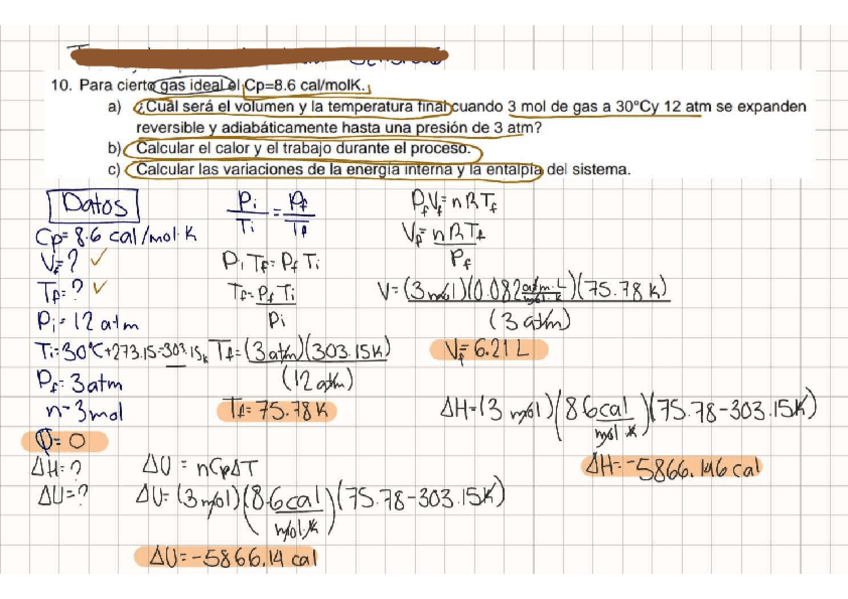 10. Para cierto gas ideal el Cp=8.6 cal/molK.
a) ¿Cuál será el volumen y la temperatura final cuando 3 mol de gas a 30°Cy 12 atm se expanden
reversible y adiabáticamente hasta una presión de 3 atm?
b) Calcular el calor y el trabajo durante el proceso.
c) Calcular las variaciones de la energía interna y la entalpia del sistema.
Datos
Cp= 8.6 cal/mol·K
Vf=? ✓
Tf=? ✓
Pi= 12 atm
Ti=30°C+273.15=303.15K
Pf= 3atm
n=3mol
Q= 0
ΔH=?
ΔU=?
Pi/Ti = Pf/Tf
Pi Tf= Pf Ti
Tf= Pf Ti / Pi
Tf= (3atm)(303.15K) / (12atm)
Tf= 75.78K
PfVf= nRTf
Vf= nRTf / Pf
V= (3mol)(0.082 atm·L/mol·K)(75.78K) / (3atm)
Vf= 6.21 L
ΔH=(3 mol)(8.6cal/mol K)(75.78-303.15K)
ΔH=-5866.146 cal
ΔU = nCpΔT
ΔU= (3mol)(8.6cal/mol·K)(75.78-303.15K)
ΔU=-5866.14 cal